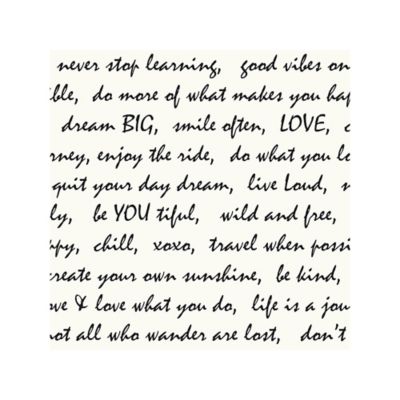 never stop learning, good vibes on
ble, do more of what makes you hap
dream BIG, smile often, LOVE, c
rney, enjoy the ride, do what you lo
quit your day dream, live Loud, n
ly, be YOU tiful, wild and free,
ppy, chill, xoxo, travel when possi
create your own sunshine, be kind,
ove & love what you do, life is a jou
not all who wander are lost, don't